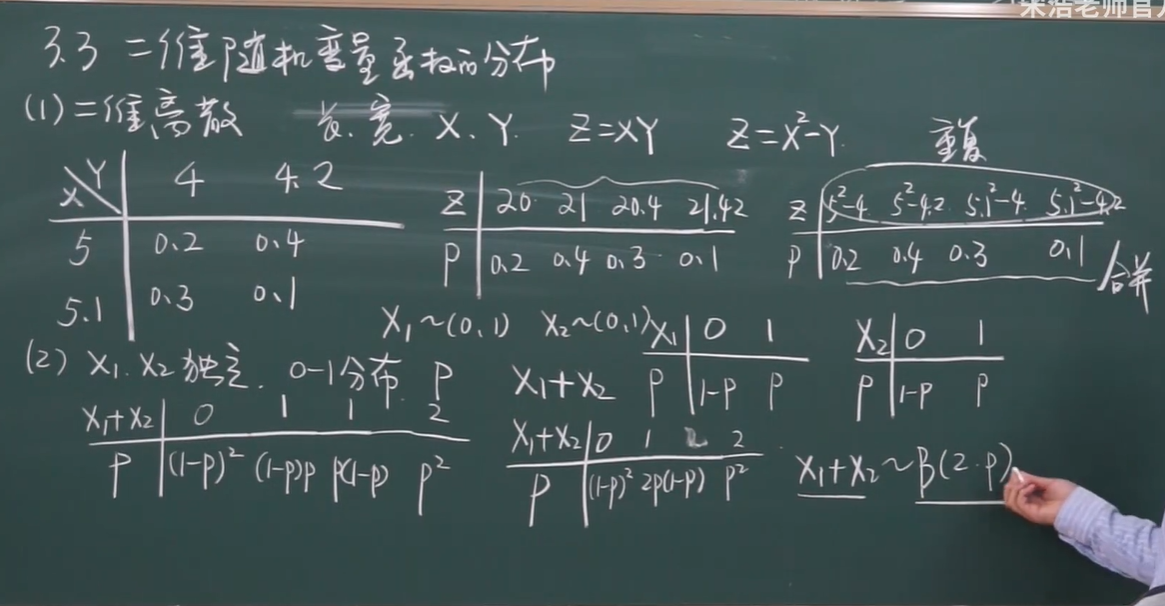 宋浩老师官方
3.3 二维随机变量函数的分布
(1) 二维离散 长、宽. X、Y. Z=XY Z=X²-Y. 重复
X\Y 4 4.2
5 0.2 0.4
5.1 0.3 0.1
Z 20 21 20.4 21.42
P 0.2 0.4 0.3 0.1
Z 5²-4 5²-4.2 5.1²-4 5.1²-4.2
P 0.2 0.4 0.3 0.1 合并
X₁~(0,1) X₂~(0,1)
X₁ 0 1
P 1-P P
X₂ 0 1
P 1-P P
(2) X₁.X₂独立. 0-1分布. P X₁+X₂
X₁+X₂ 0 1 1 2
P (1-P)² (1-P)P P(1-P) P²
X₁+X₂ 0 1 2
P (1-P)² 2P(1-P) P²
X₁+X₂~B(2.P)